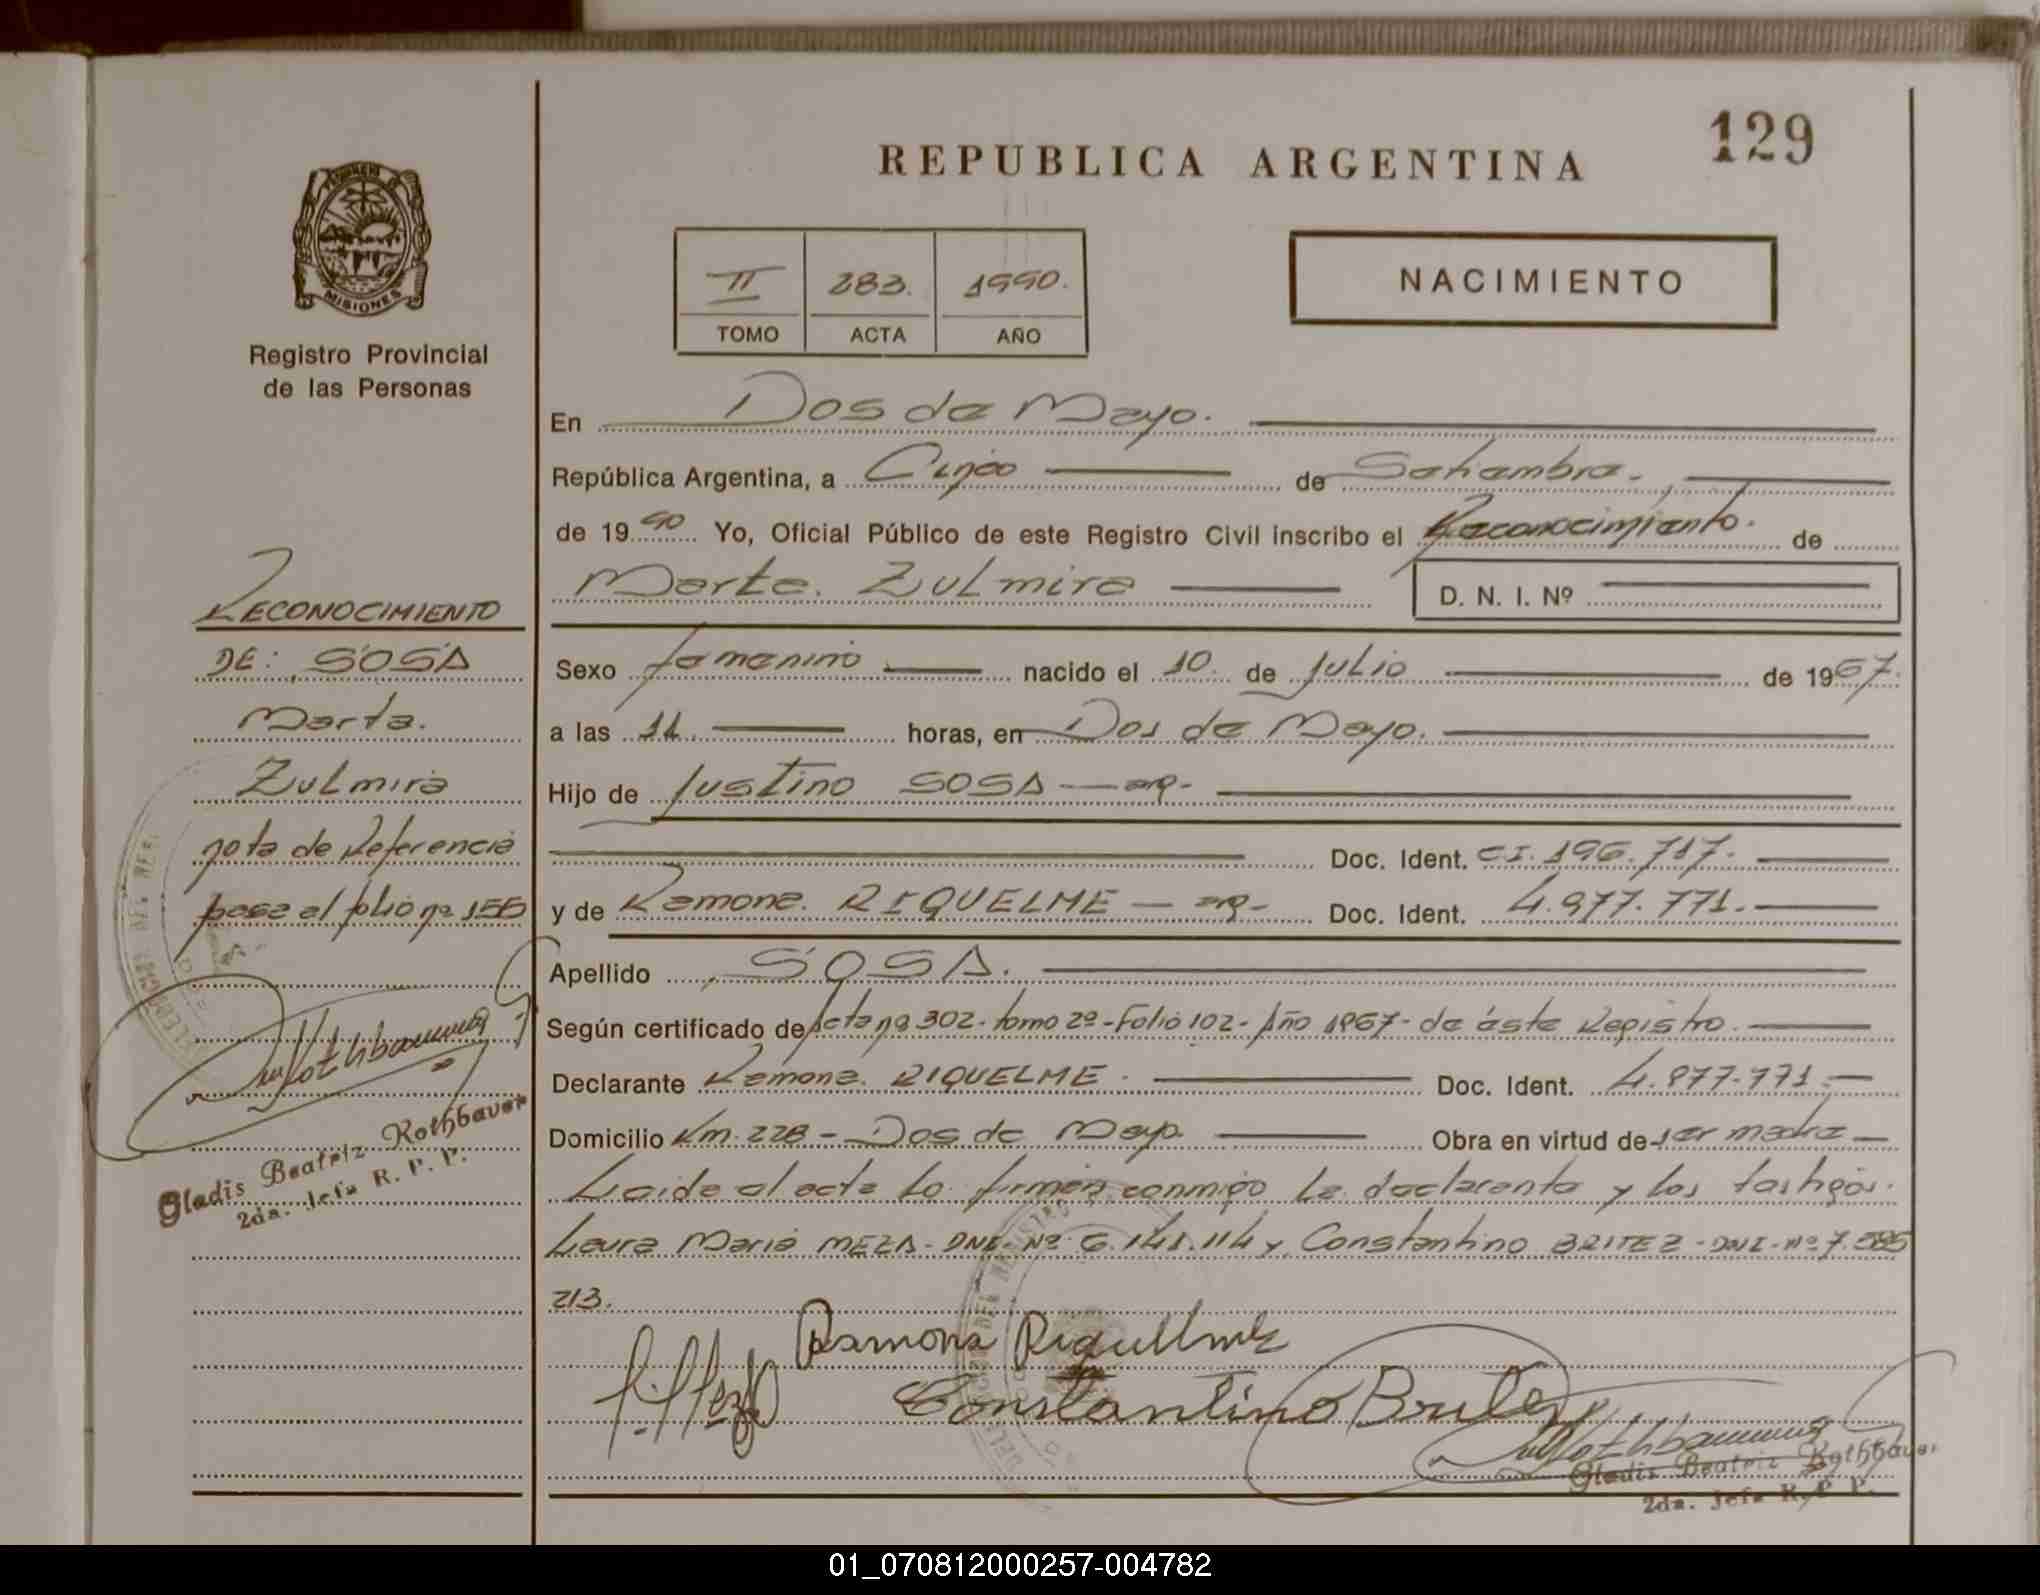 129
REPUBLICA ARGENTINA
PROVINCIA DE
MISIONES
Registro Provincial
de las Personas
II 283. 1990.
TOMO ACTA AÑO
NACIMIENTO
En Dos de Mayo.
República Argentina, a Cinco de Setiembre.
de 1990 Yo, Oficial Público de este Registro Civil inscribo el Reconocimiento. de
Marta Zulmira D. N. I. Nº
Sexo femenino nacido el 10 de Julio de 1967.
a las 11 horas, en Dos de Mayo.
Hijo de Justino SOSA - arg-
Doc. Ident. CI. 196.717.
y de Ramona RIQUELME - arg- Doc. Ident. 4.977.771.
Apellido SOSA.
Según certificado de Acta nº 302- tomo 2º-Folio 102- Año 1967- de éste Registro.
Declarante Ramona RIQUELME. Doc. Ident. 4.977.771.
Domicilio Km. 228 - Dos de Mayo. Obra en virtud de ser madre
Leida el acta la firman conmigo la declarante y los testigos.
Laura Maria MEZA- DNI- Nº 6.141.114 y Constantino BRITEZ - DNI - Nº 7.585
213.
Ramona Riquelme
Constantino Britez
Gladis Beatriz Rothbauer
2da. Jefa R. P. P.
RECONOCIMIENTO
DE: SOSA
Marta.
Zulmira
nota de Referencia
pasa al folio nº
Gladis Beatriz Rothbauer
2da. Jefa R. P. P.
01_070812000257-004782